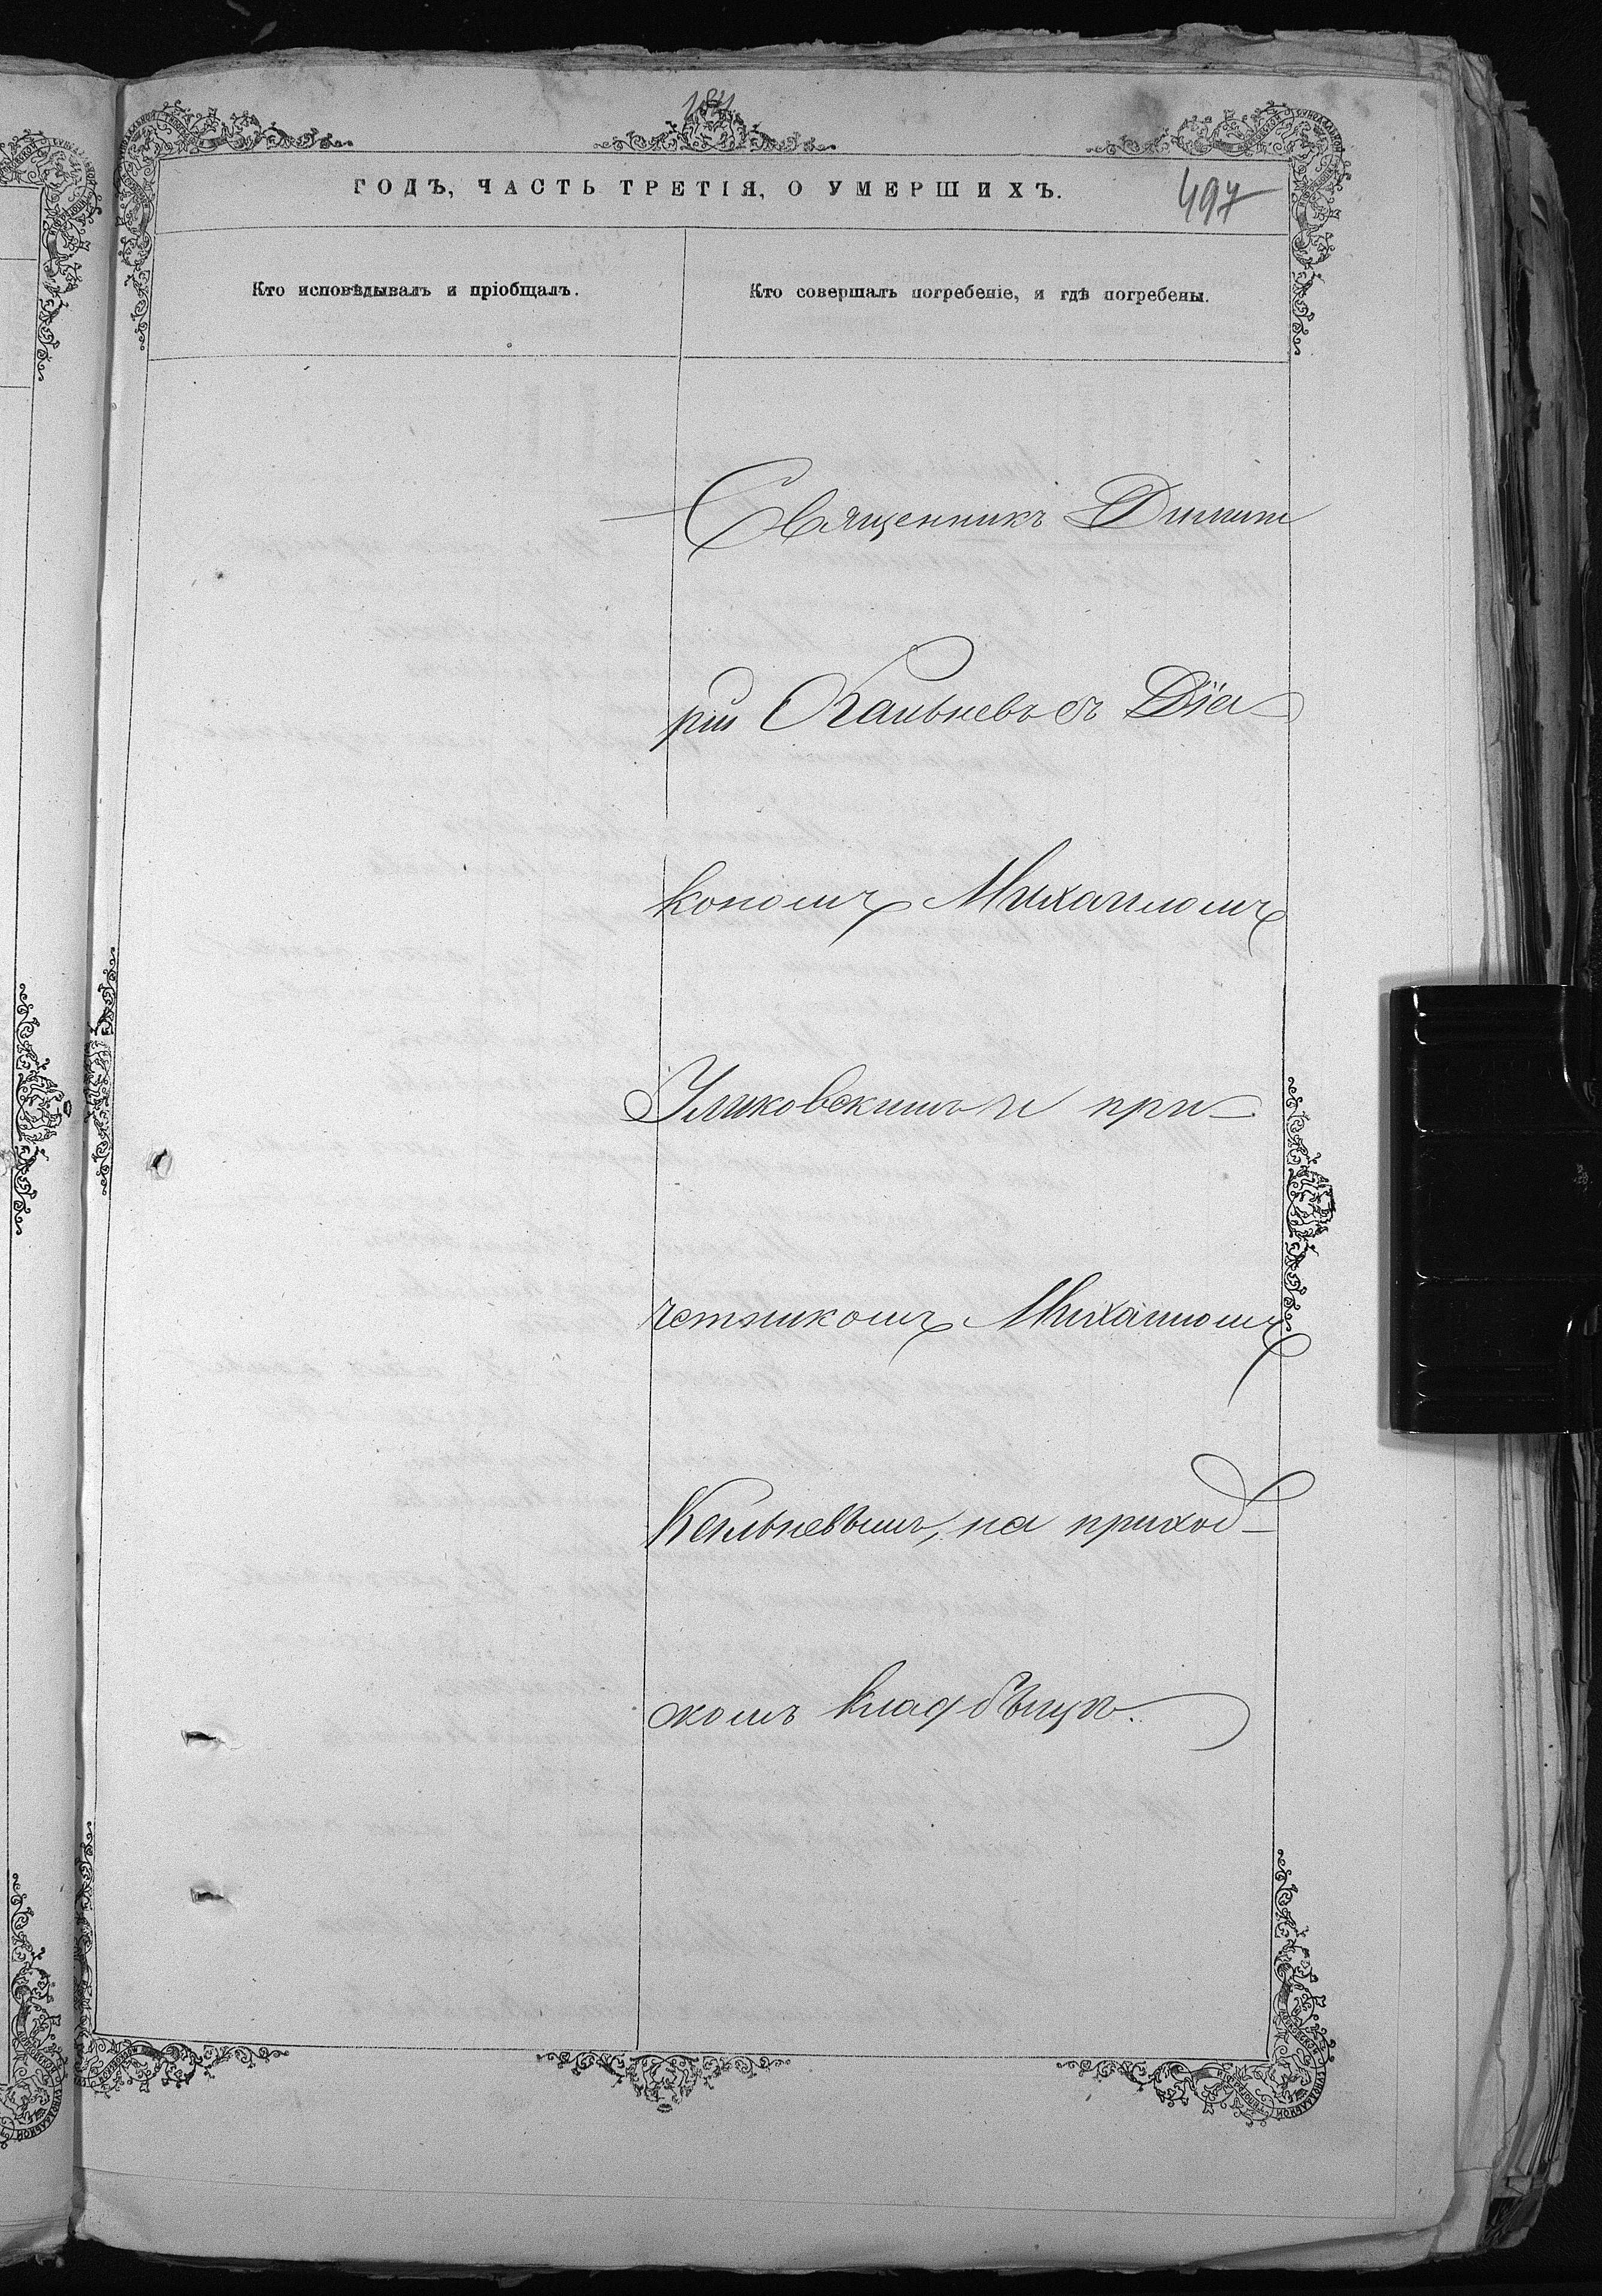 184
ГОДЪ, ЧАСТЬ ТРЕТІЯ, О УМЕРШИХЪ.
497
Кто исповѣдывалъ и пріобщалъ.
Кто совершалъ погребеніе, и гдѣ погребены.
Священникъ Димит
рій Кальневъ съ Діа-
кономъ Михаиломъ
Уликовскимъ и при-
четникомъ Михаиломъ
Кальневымъ, на приход-
скомъ кладбѣщѣ.